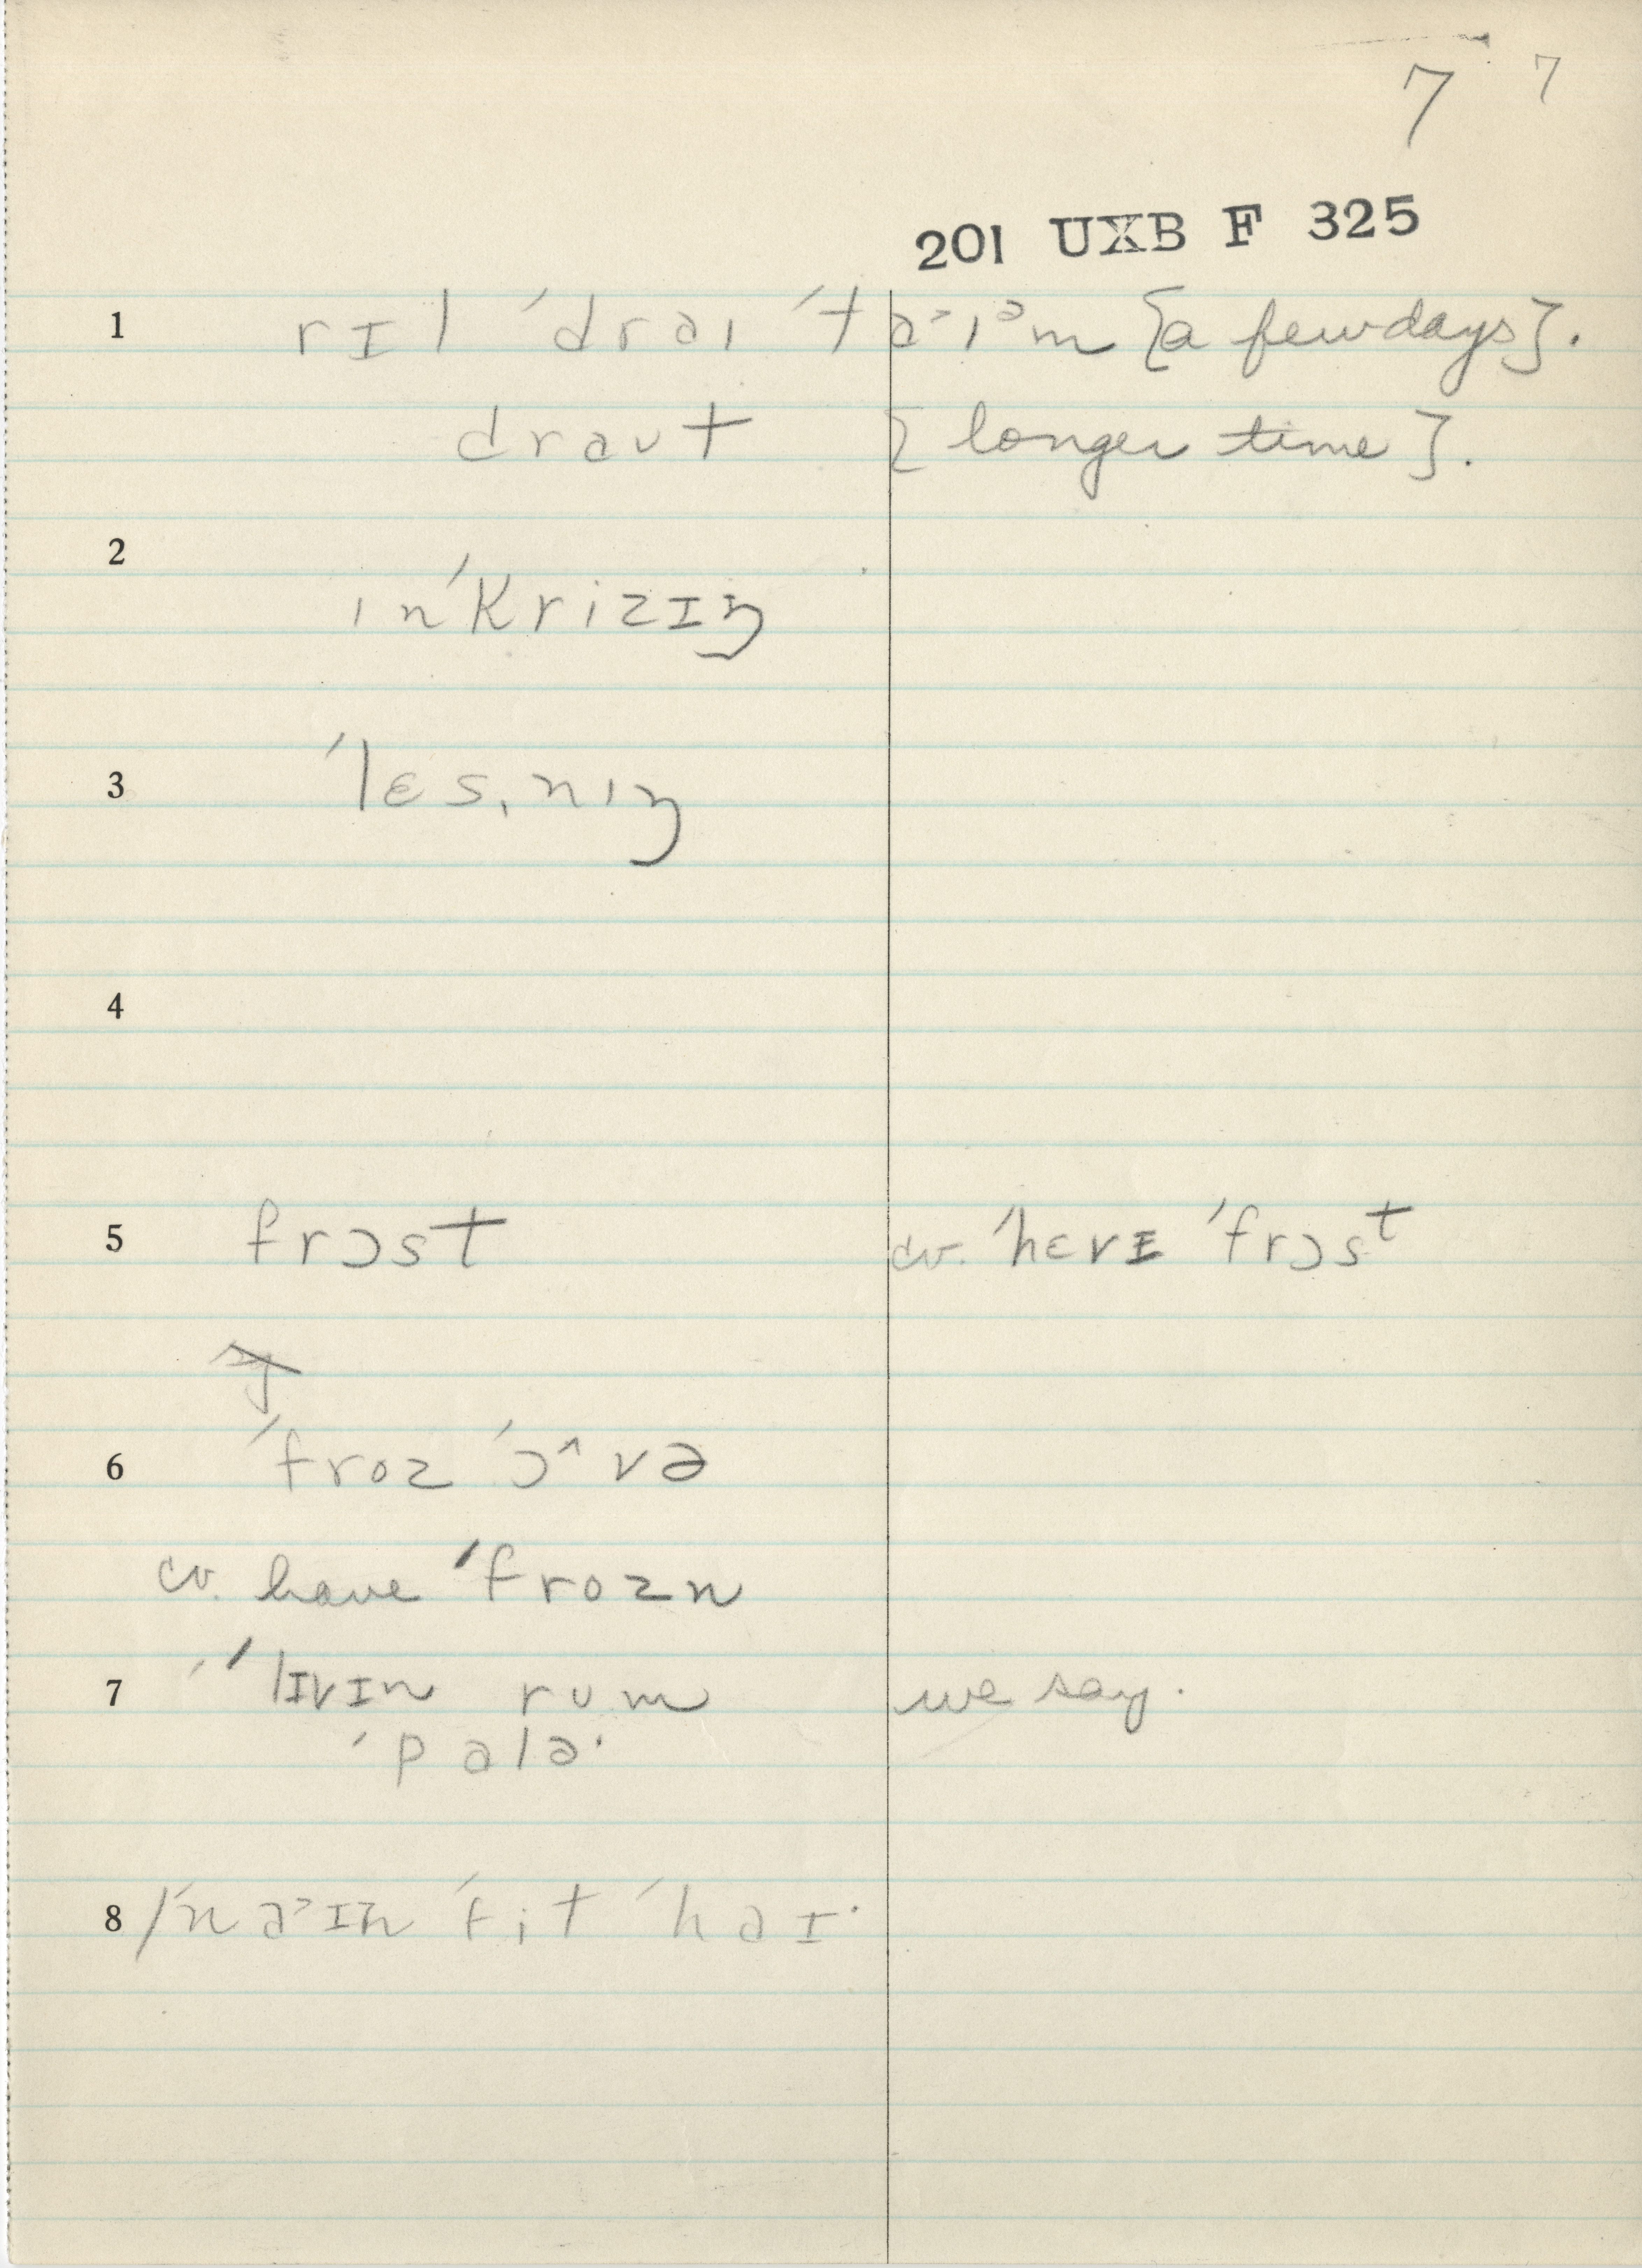 7 7
201 UXB F 325
1 rɪl ˈdraɪ ˈta˃ɪᵊm {a few days}.
draʊt {longer time}.
2 ɪnˈkrizɪŋ
3 ˈlɛsˌnɪŋ
4
5 frɔst cv. ˈhɛvɪ ˈfrɔst
6 ˈfroz ˈɔ^və
cv. have ˈfrozn
7 ˈˈlɪvɪn rum we say.
ˈpalə·
8 /ˈna˃ɪn ˈfit ˈhaɪ·